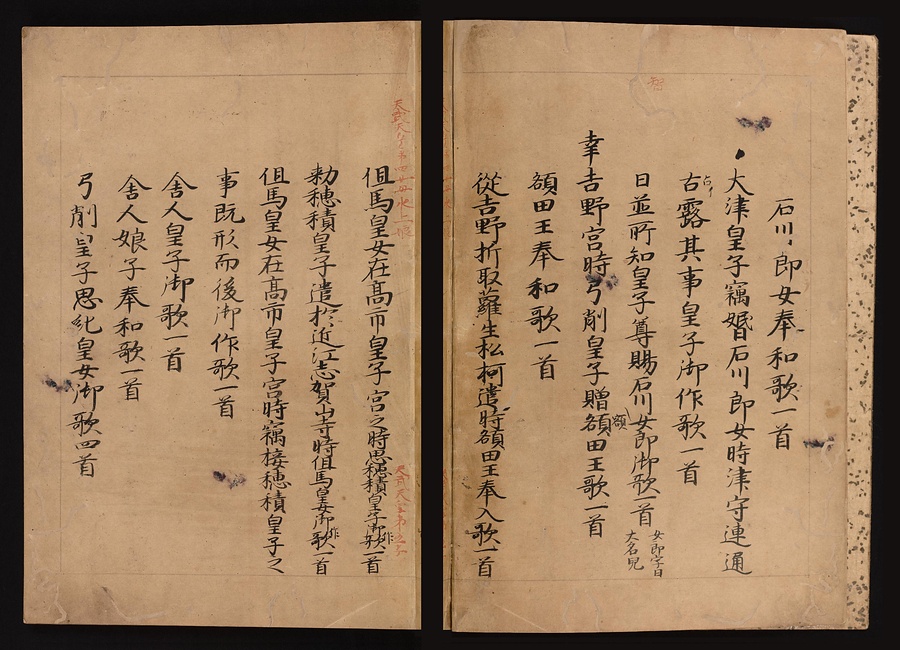 石川郎女奉和歌一首
大津皇子竊婚石川郎女時津守連通
占露其事皇子御作歌一首
日並所知皇子尊賜石川女郎御歌一首 女郎字曰大名兒
幸吉野宮時弓削皇子贈額田王歌一首
額田王奉和歌一首
從吉野折取蘿生松柯遣時額田王奉入歌一首
但馬皇女在高市皇子宮之時思穂積皇子御作歌一首
勅穂積皇子遣於近江志賀山寺時但馬皇女御作歌一首
但馬皇女在高市皇子宮時竊接穂積皇子之
事既形而後御作歌一首
舎人皇子御歌一首
舎人娘子奉和歌一首
弓削皇子思紀皇女御歌四首